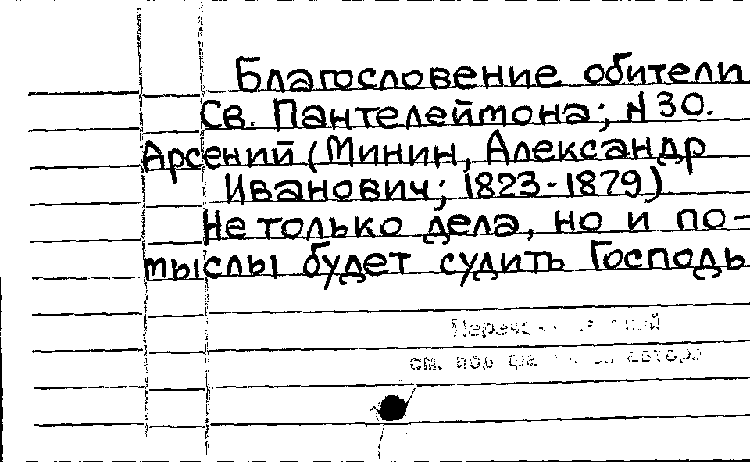 Благословение обители
Св. Пантелеймона; N 30.
Арсений (Минин, Александр
Иванович; 1823-1879)
Не только дела, но и по-
мыслы будет судить Господь
см. под